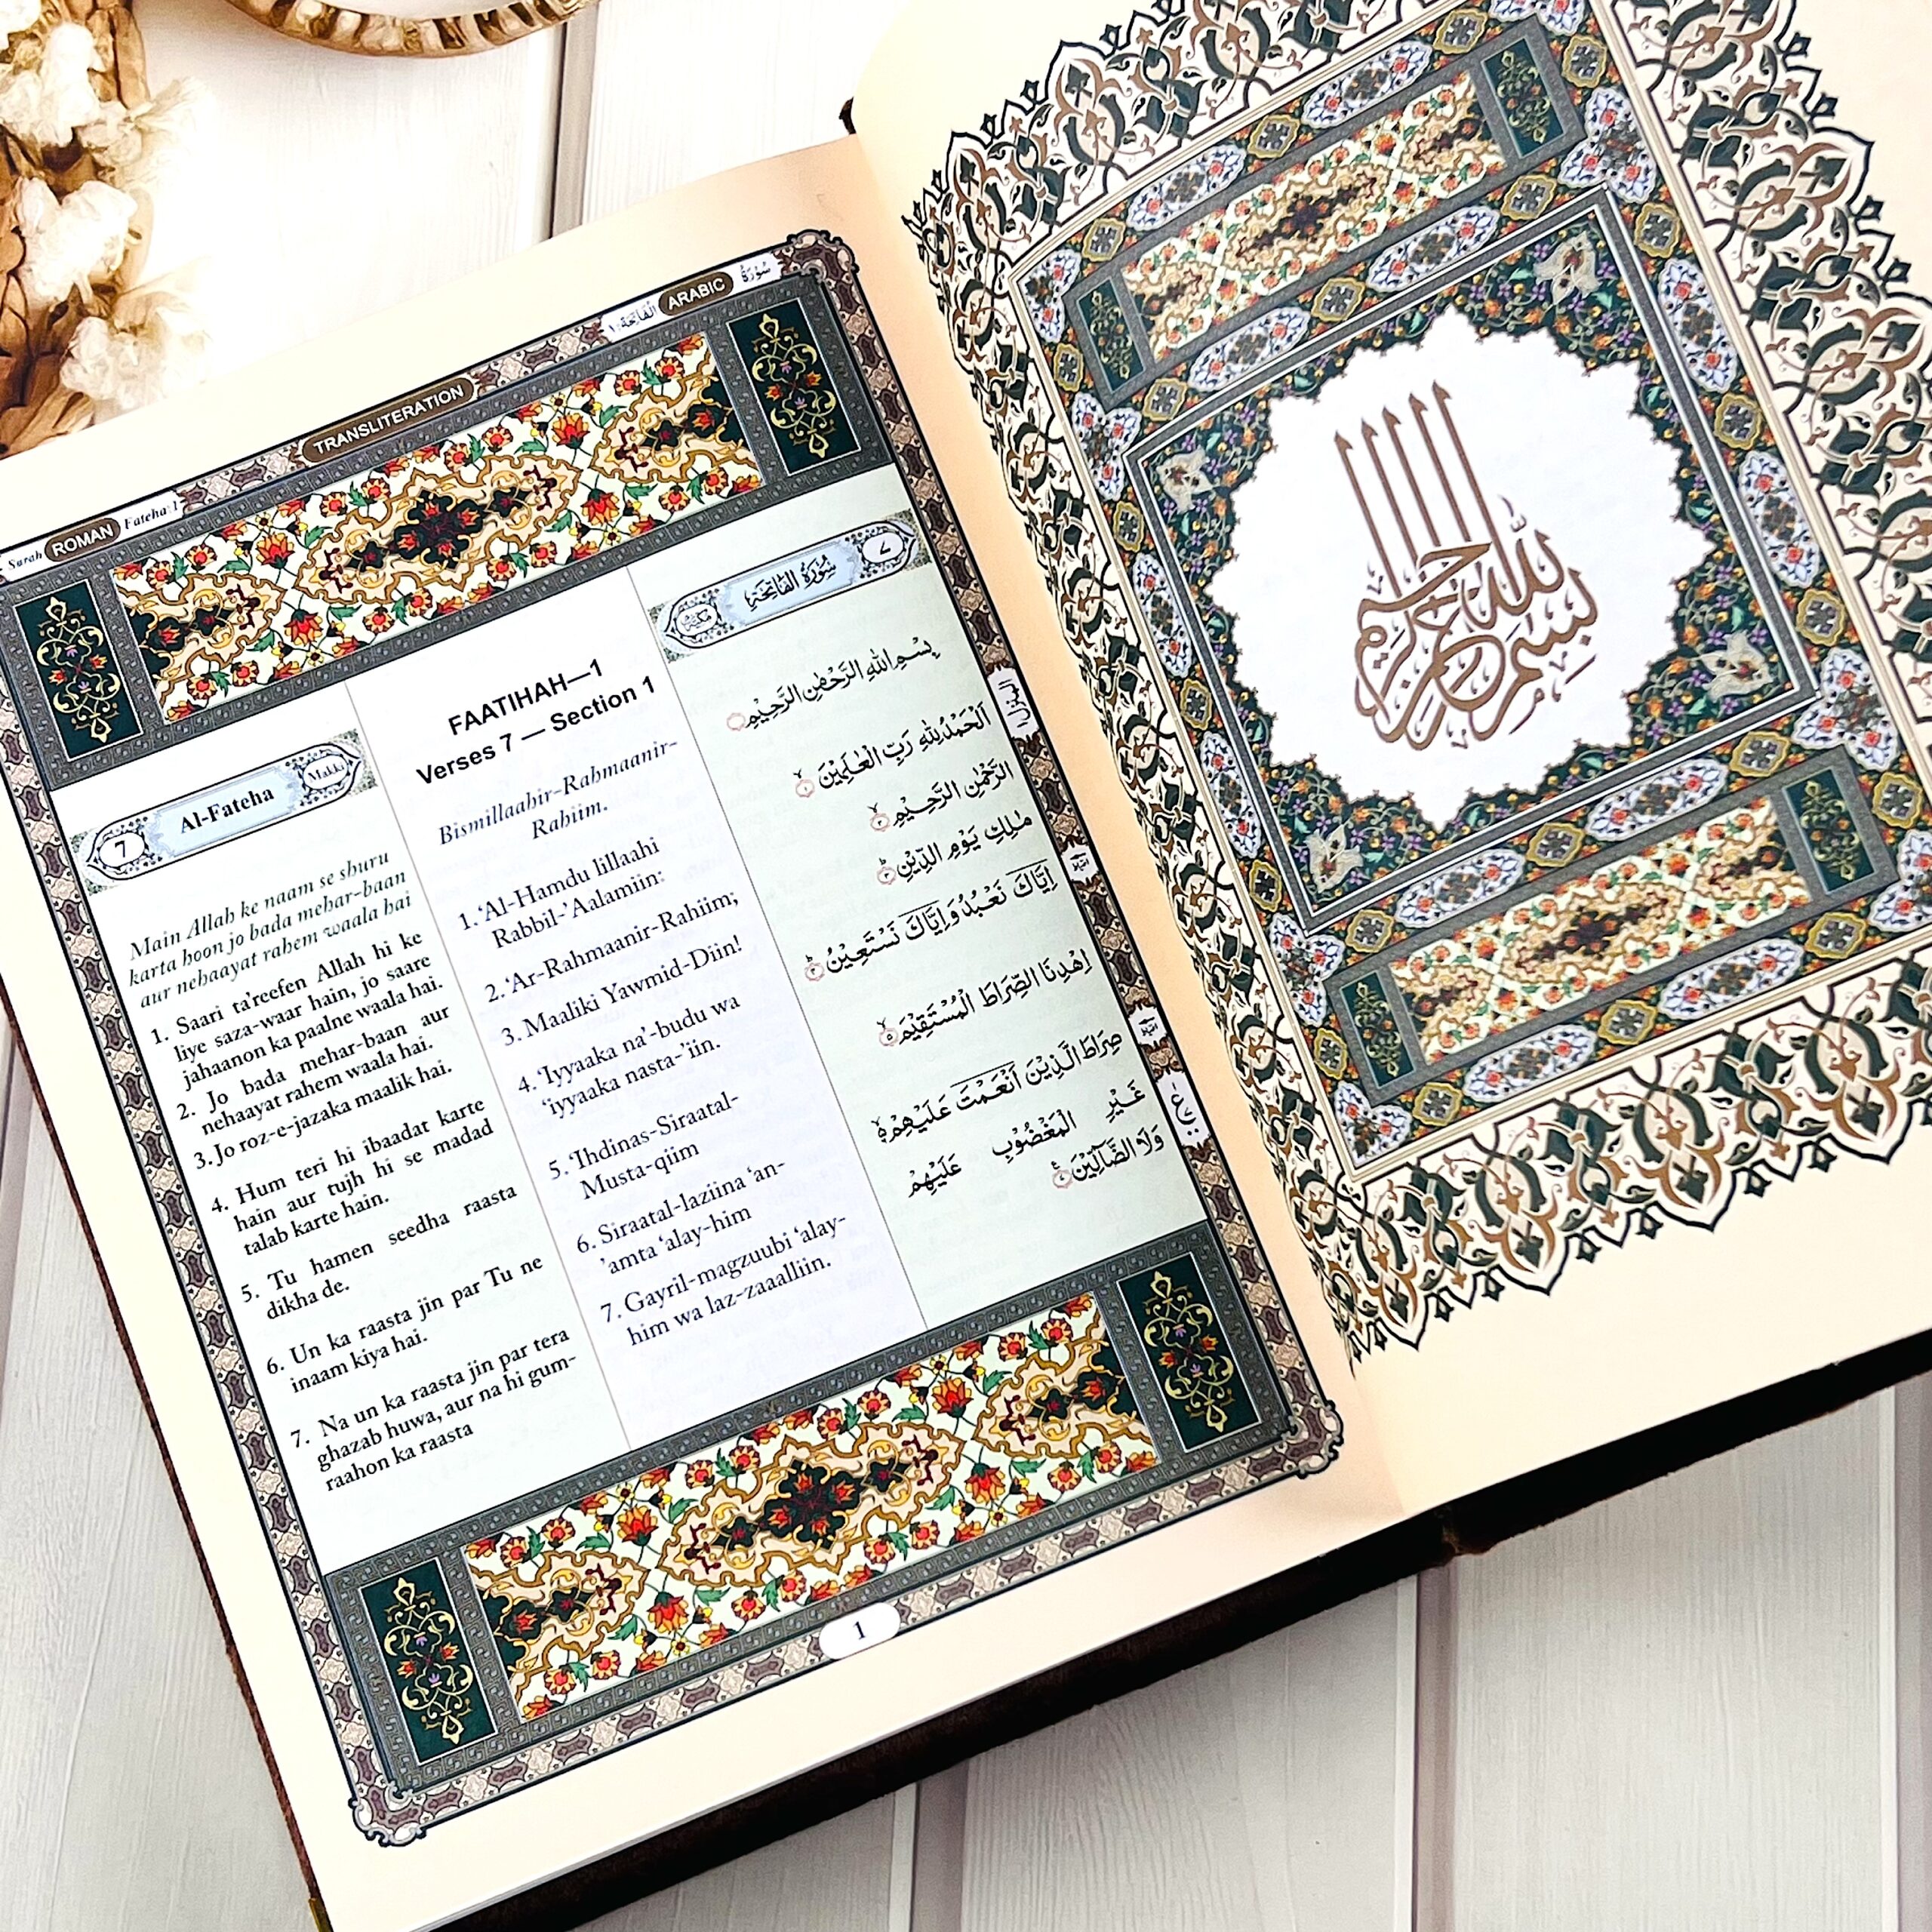 Surah ROMAN Fateha:1
TRANSLITERATION
الْفَاتِحَة ١ ARABIC سُوْرَةُ
7 Al-Fateha Makki
Main Allah ke naam se shuru
karta hoon jo bada mehar-baan
aur nehaayat rahem waala hai
1. Saari ta'reefen Allah hi ke
liye saza-waar hain, jo saare
jahaanon ka paalne waala hai.
2. Jo bada mehar-baan aur
nehaayat rahem waala hai.
3. Jo roz-e-jazaka maalik hai.
4. Hum teri hi ibaadat karte
hain aur tujh hi se madad
talab karte hain.
5. Tu hamen seedha raasta
dikha de.
6. Un ka raasta jin par Tu ne
inaam kiya hai.
7. Na un ka raasta jin par tera
ghazab huwa, aur na hi gum-
raahon ka raasta
FAATIHAH—1
Verses 7 — Section 1
Bismillaahir-Rahmaanir-
Rahiim.
1. ‘Al-Hamdu lillaahi
Rabbil-’Aalamiin:
2. ‘Ar-Rahmaanir-Rahiim;
3. Maaliki Yawmid-Diin!
4. ‘Iyyaaka na’-budu wa
‘iyyaaka nasta-’iin.
5. ‘Ihdinas-Siraatal-
Musta-qiim
6. Siraatal-laziina ‘an-
’amta ‘alay-him
7. Gayril-magzuubi ‘alay-
him wa laz-zaaalliin.
مكية سُوْرَةُ الْفَاتِحَةِ ٧
بِسْمِ اللهِ الرَّحْمٰنِ الرَّحِيْمِ
اَلْحَمْدُ لِلّٰهِ رَبِّ الْعٰلَمِيْنَ ١
الرَّحْمٰنِ الرَّحِيْمِ ٢
مٰلِكِ يَوْمِ الدِّيْنِ ٣
اِيَّاكَ نَعْبُدُ وَاِيَّاكَ نَسْتَعِيْنُ
اِهْدِنَا الصِّرَاطَ الْمُسْتَقِيْمَ ٥
صِرَاطَ الَّذِيْنَ اَنْعَمْتَ عَلَيْهِمْ
غَيْرِ الْمَغْضُوْبِ عَلَيْهِمْ
وَلَا الضَّآلِّيْنَ
المنزل
1
بِسْمِ اللهِ الرَّحْمٰنِ الرَّحِيْمِ